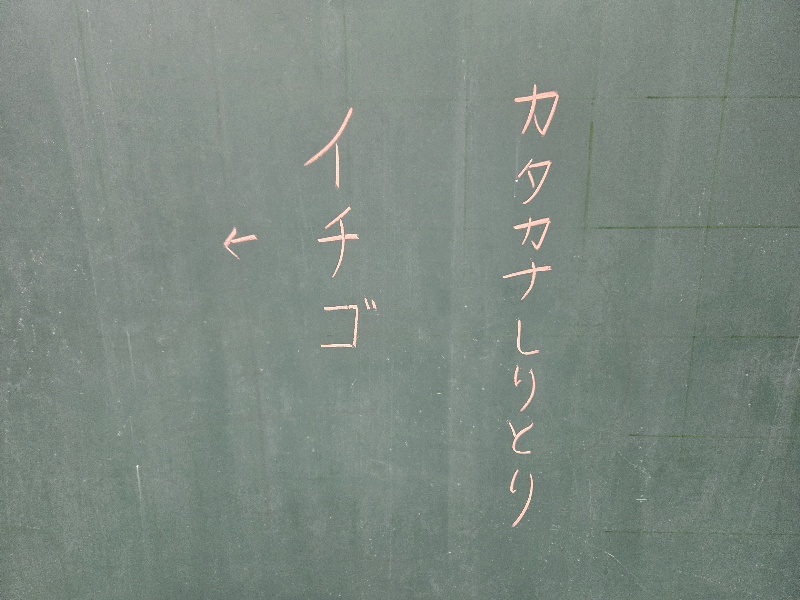 カタカナしりとり
イチゴ
←